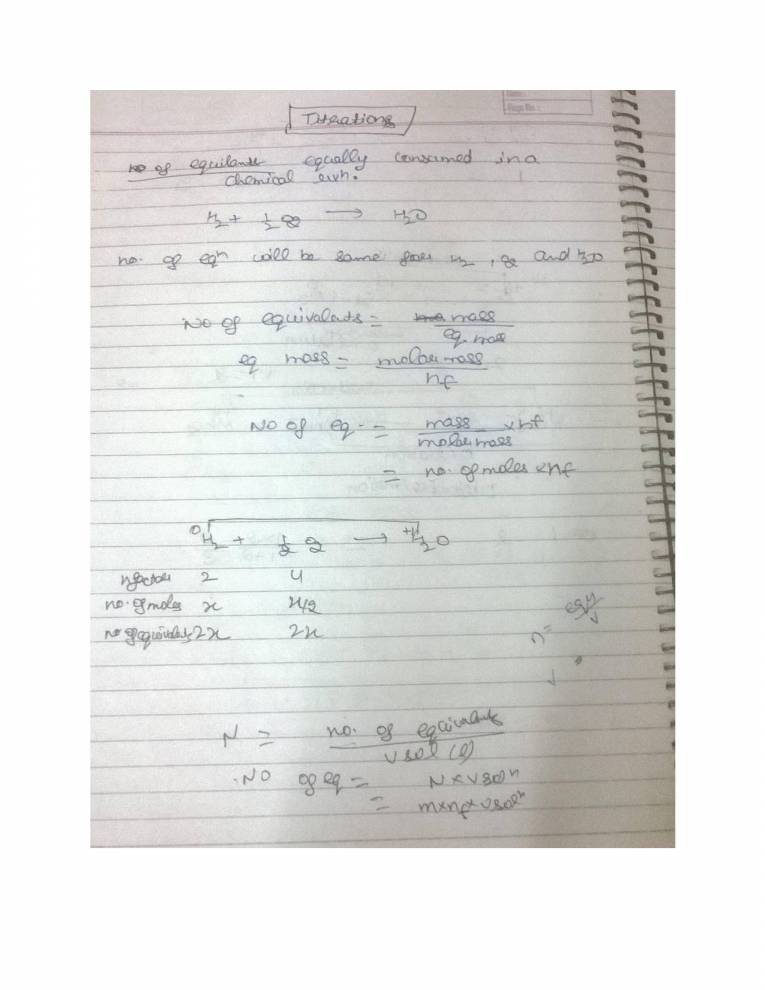 Titrations
no of equilants equally consumed in a
chemical rxn.
H2 + 1/2 O2 → H2O
no. of eqn will be same for H2, O2 and H2O
No of equivalats = mass / eq mass
eq mass = molar mass / nf
No of eq. = mass / molar mass × nf
= no. of moles × nf
0 H2 + 1/2 O2 → +1 H2O
nfactor 2 4
no. of moles x x/2
no of equivalents 2x 2x
n =
N = no. of equivalents / V sol (l)
No of eq = N × V soln
= m × nf × V soln